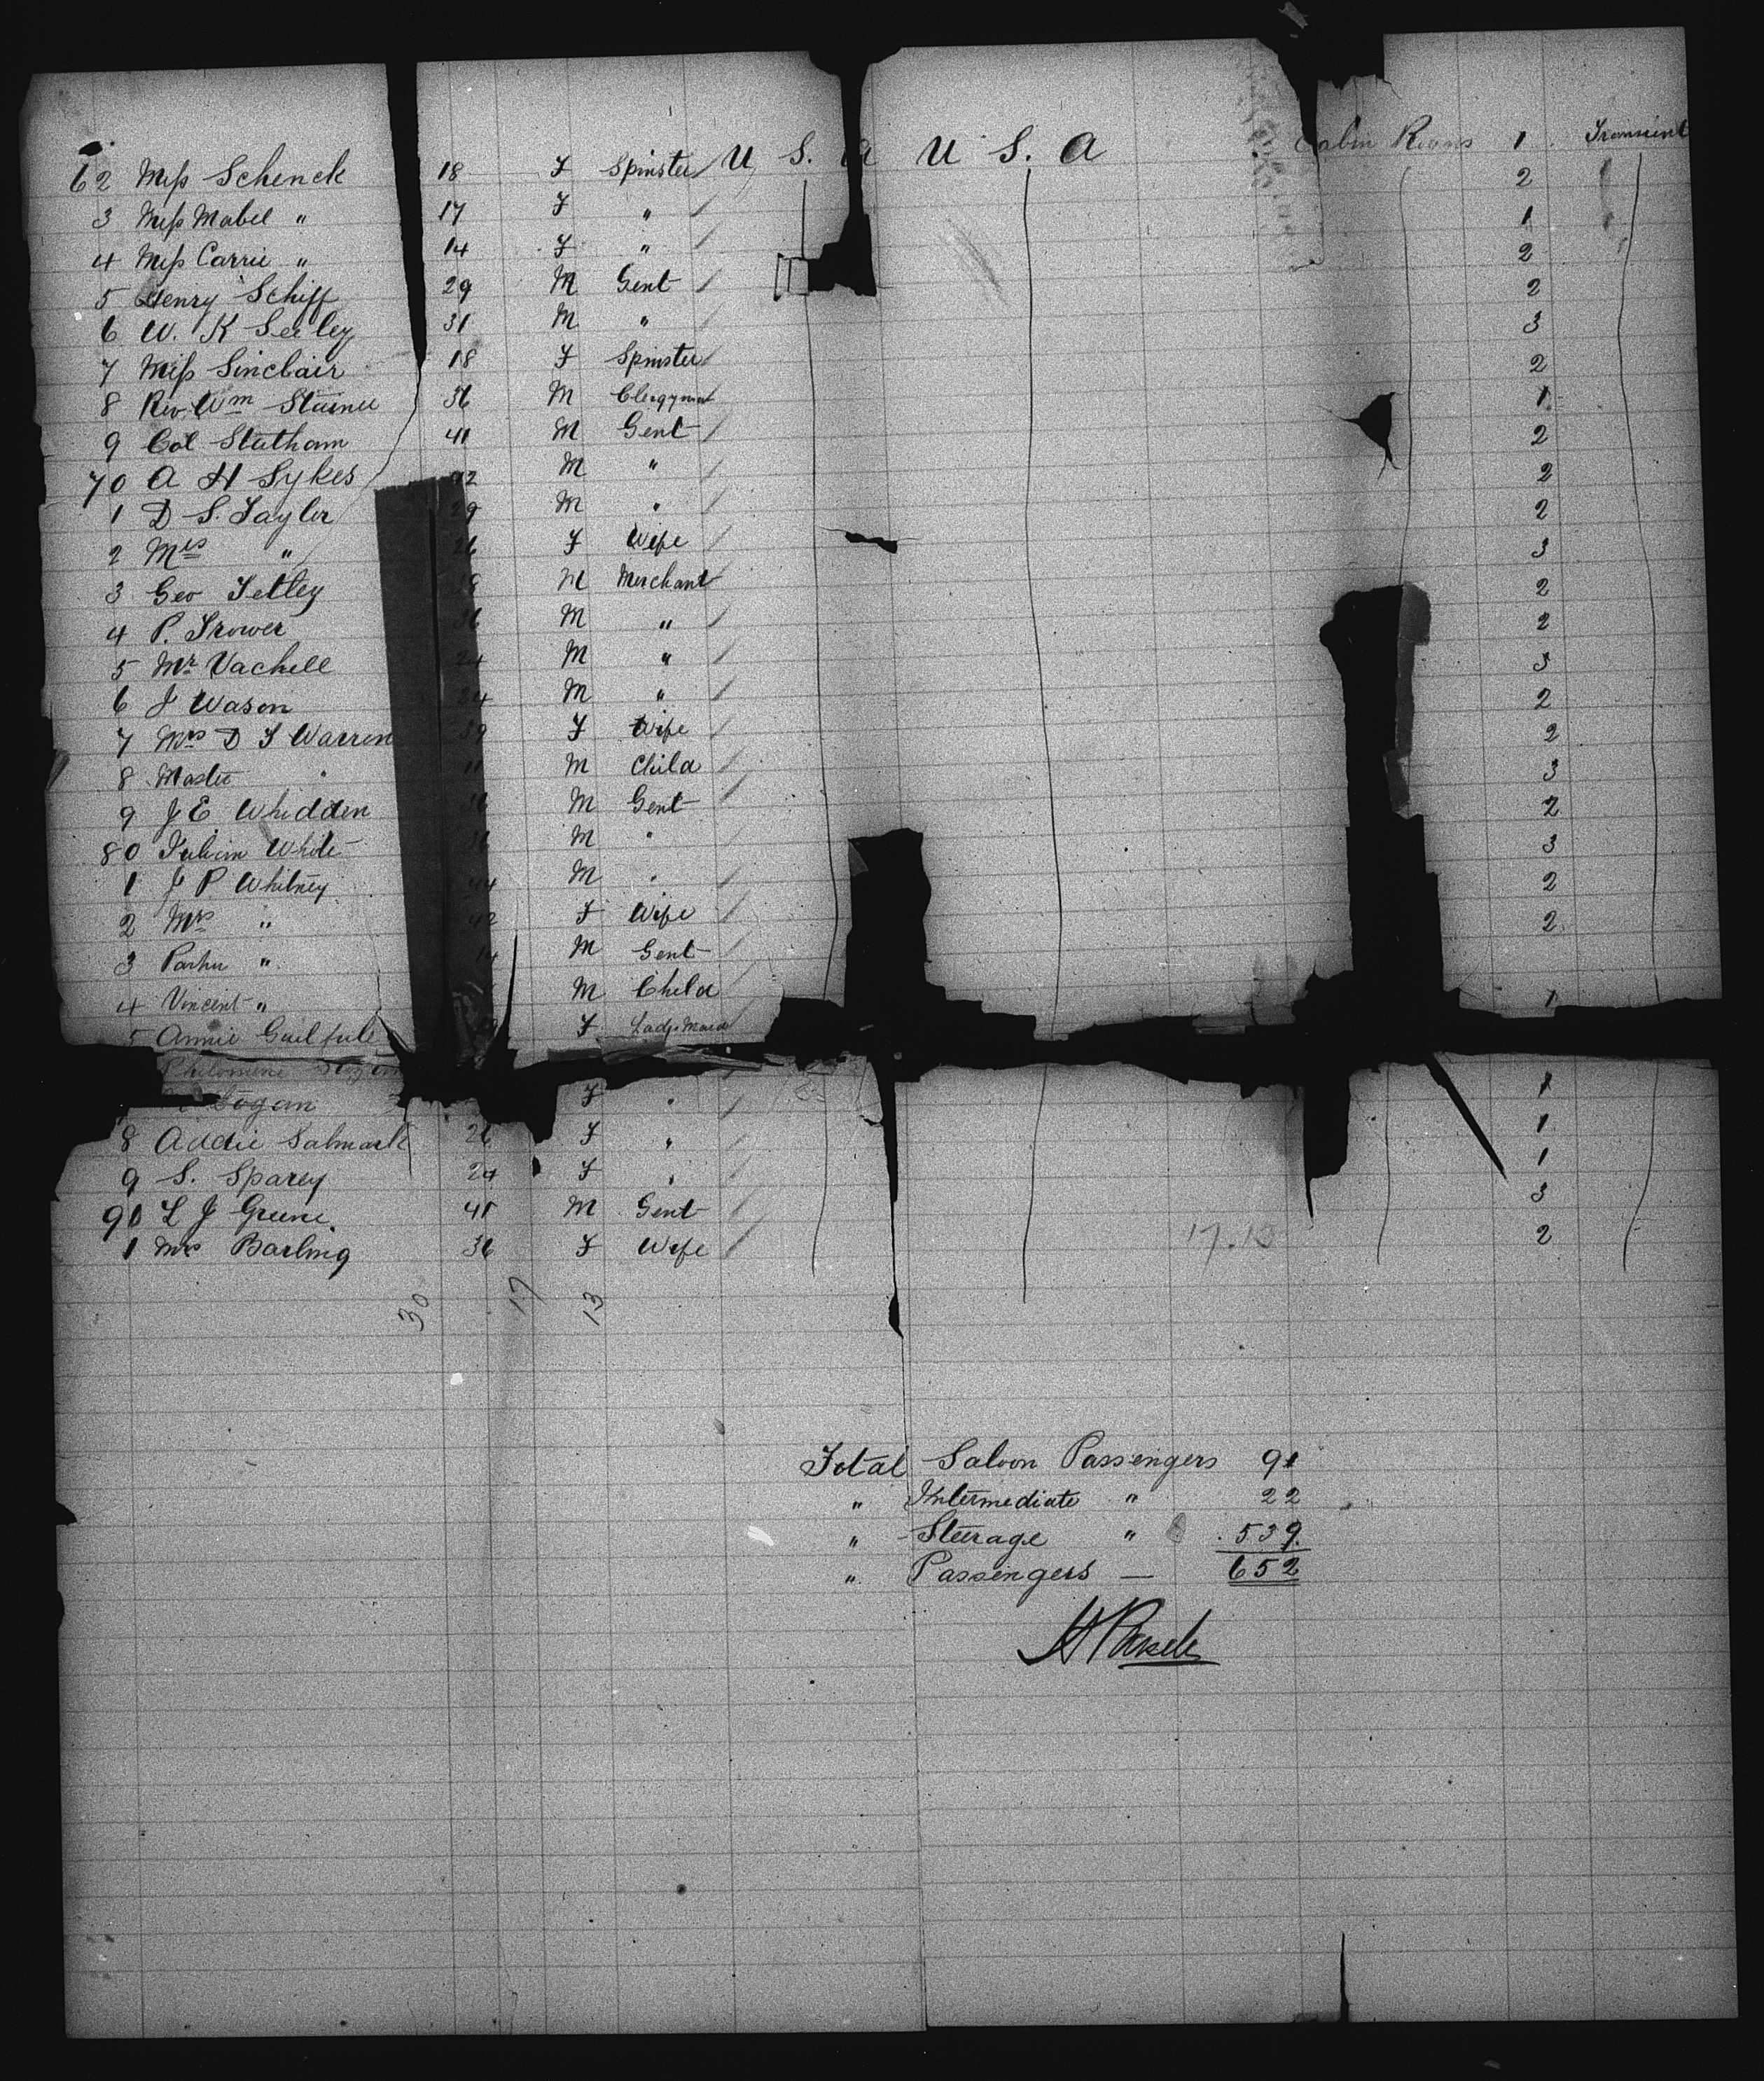 62 Miss Schenck 18 F Spinster U S. A U S. A Cabin Rooms 1 Transient
3 Miss Mabel " 17 F " 2
4 Miss Carrie " 14 F " 1
5 Henry Schiff 29 M Gent 2
6 W. K Seeley 31 M " 2
7 Miss Sinclair 18 F Spinster 3
8 Rev. Wm 36 M Clergyman 2
9 Col Statham 41 M Gent 1
70 A H Sykes M " 2
1 D S. Tayler 29 M " 2
2 Mrs " 26 F Wife 2
3 Geo Tetley M Merchant 3
4 P. Trower 36 M " 2
5 Mr Vachell 24 M " 2
6 J Wason 34 M " 3
7 Mrs D T Warren 39 F Wife 2
8 Master " 11 M Child 2
9 J E Whidden M Gent 3
80 White M " 2
1 J P Whitney 44 M " 3
2 Mrs " 42 F Wife 2
3 " 14 M Gent 2
4 Vincent " M Child
5 Annie F Lady's Maid 1
Philomene
Logan F " 1
8 Addie 26 F " 1
9 S. Sparey 24 F " 1
90 L J Greene. 41 M Gent 3
1 Mrs Barling 36 F Wife 17.13 2
30 17 13
Total Saloon Passengers 91
" Intermediate " 22
" Steerage " 539.
" Passengers — 652